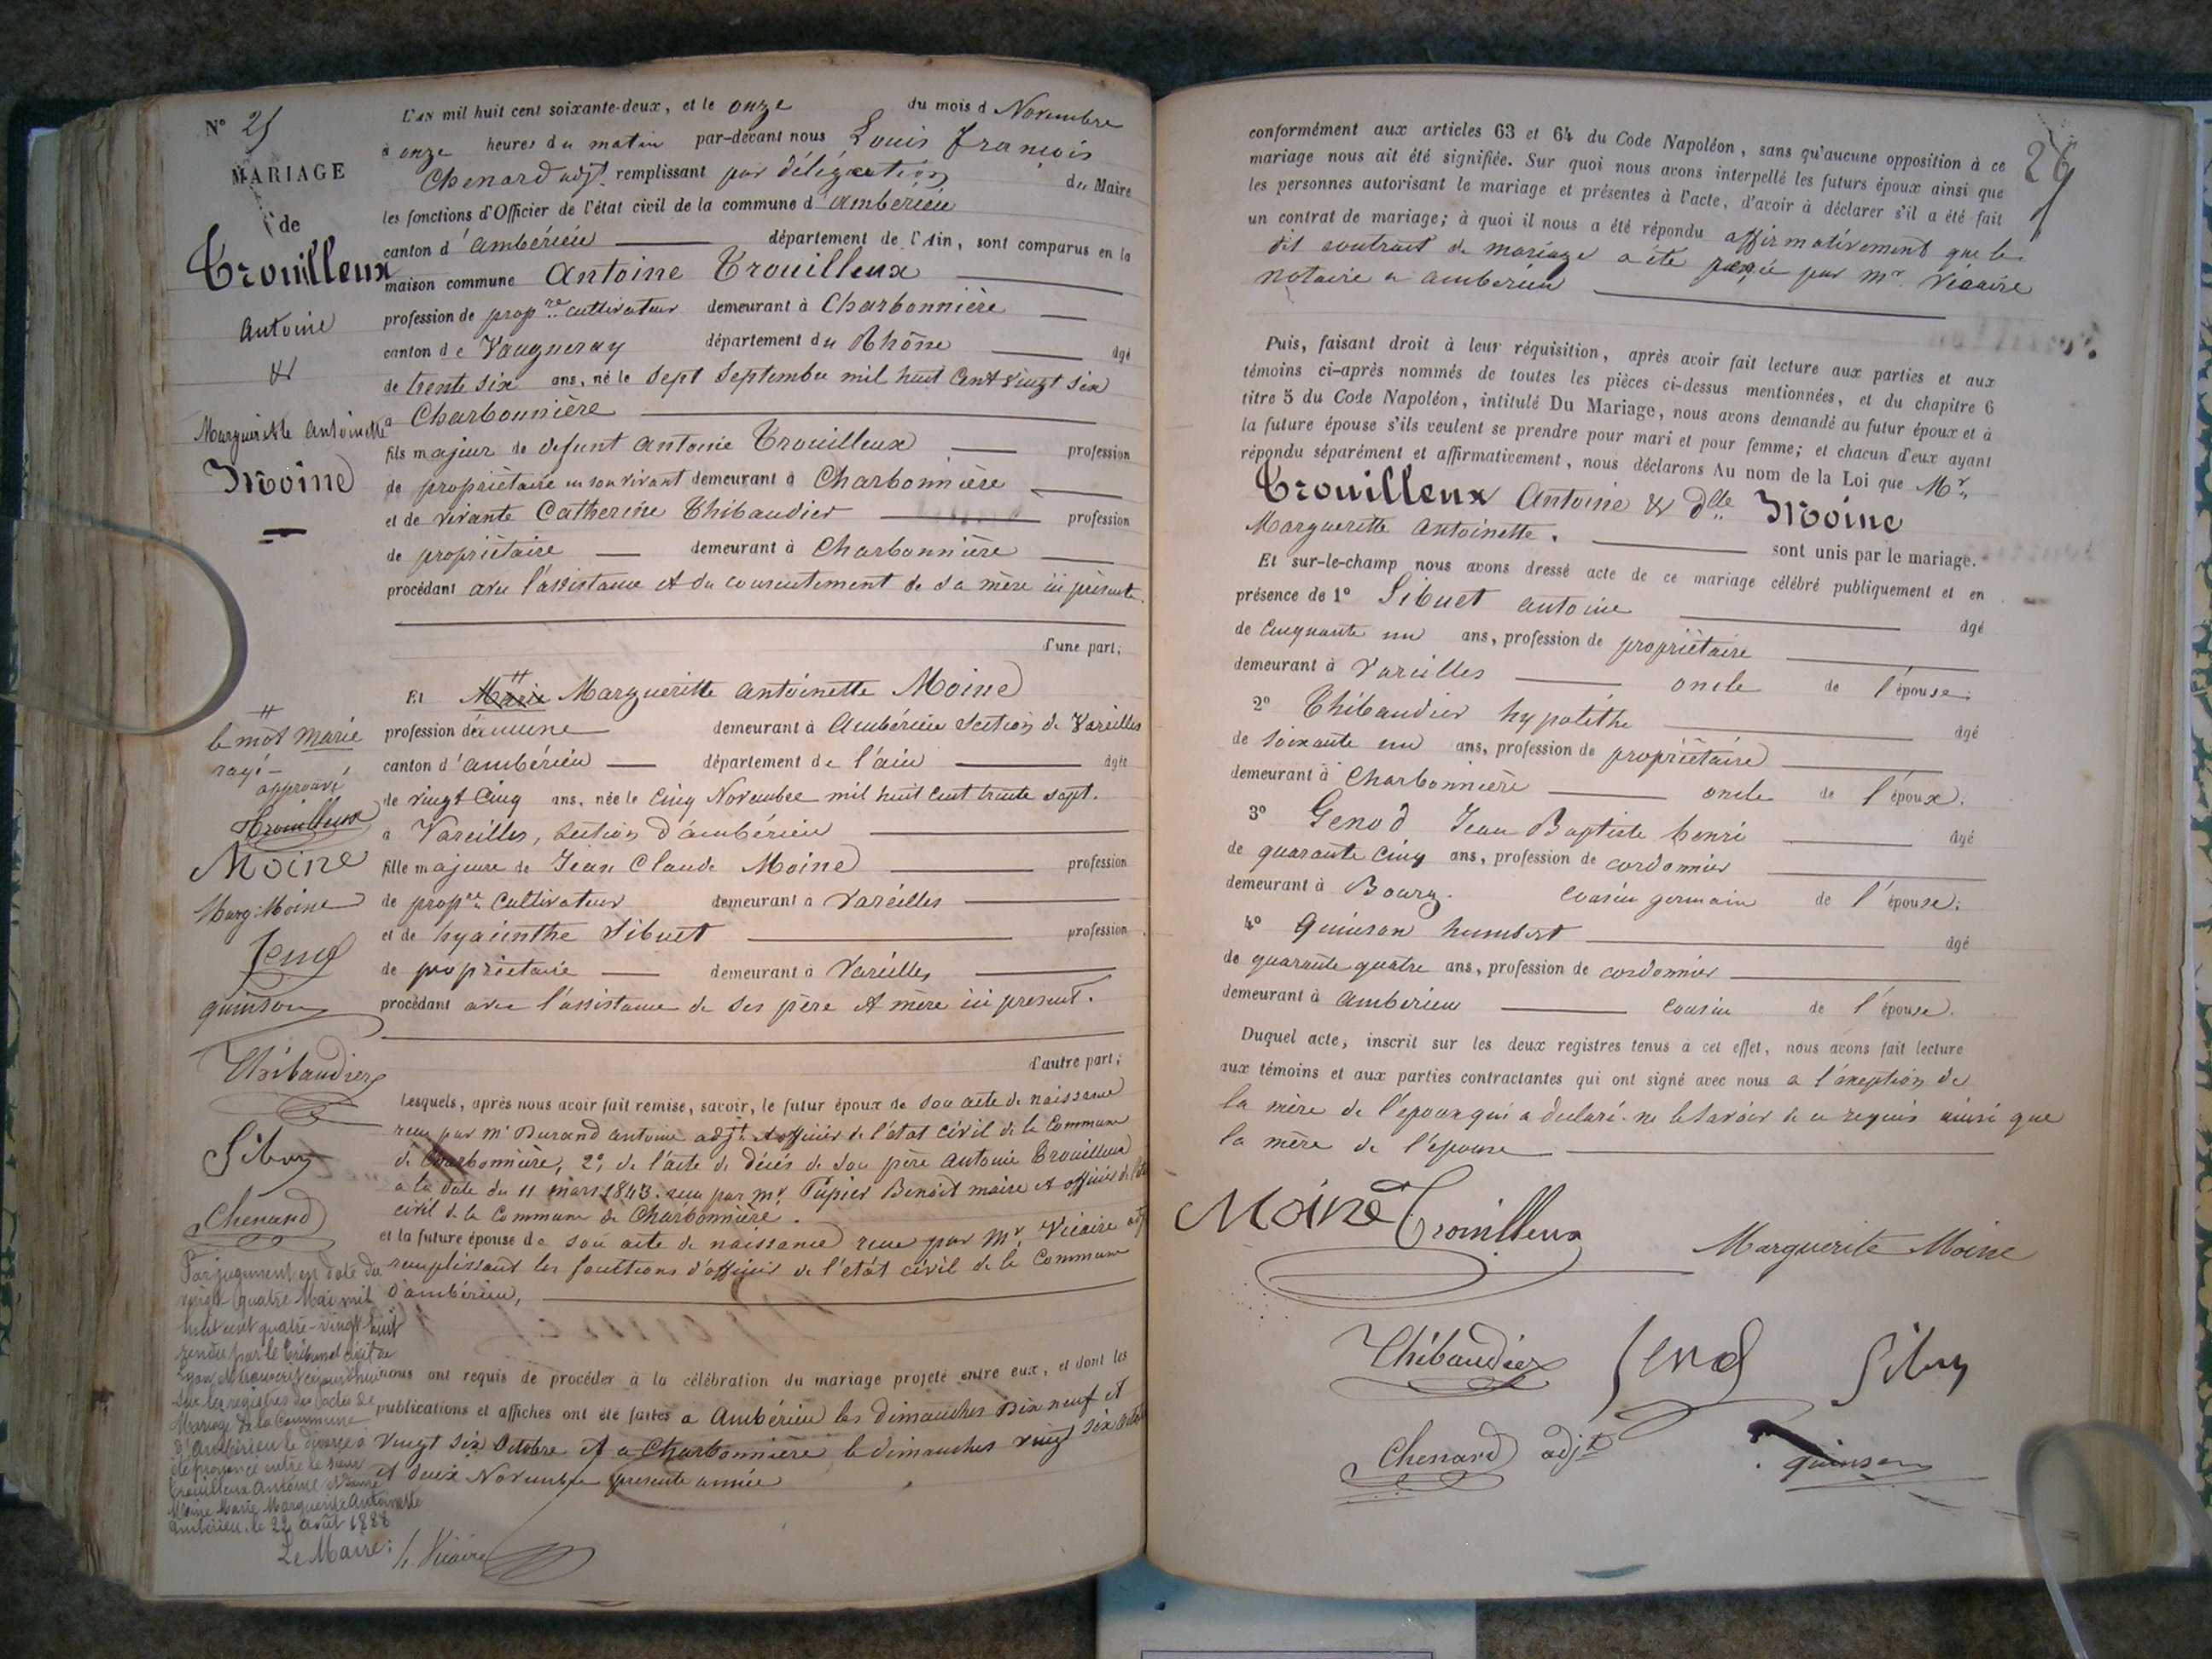 N° 25
MARIAGE
de
Trouilleux
Antoine
&
Marguerite Antoinette
Moine
L'AN mil huit cent soixante-deux, et le onze du mois d Novembre
à onze heures du matin par-devant nous Louis François
Chenard adjt. remplissant par délégation du Maire
les fonctions d'Officier de l'état civil de la commune d'ambérieu
canton d'ambérieu département de l'Ain, sont comparus en la
maison commune Antoine Trouilleux
profession de propre. cultivateur demeurant à Charbonnière
canton de Vaugneray département du Rhône âgé
de trente six ans, né le Sept Septembre mil huit cent vingt six
a Charbonnière
fils majeur de defunt Antoine Trouilleux profession
de propriétaire en son vivant demeurant à Charbonnière
et de vivante Catherine Thibaudier profession
de propriétaire demeurant à Charbonnière
procédant avec l'assistance et du consentement de sa mère ici présente.
d'une part;
Et Marie Marguerite Antoinette Moine
profession de aucune demeurant à Ambérieu Section de Vareilles
canton d'ambérieu département de l'ain âgée
de vingt cinq ans, née le cinq Novembre mil huit cent trente sept.
a Vareilles, Section d'ambérieu
fille majeure de Jean Claude Moine profession
de propre. Cultivateur demeurant à Vareilles
et de hyacinthe Sibuet profession
de propriétaire demeurant à Vareilles
procédant avec l'assistance de ses père et mère ici present.
d'autre part;
Lesquels, après nous avoir fait remise, savoir, le futur époux de son acte de naissance
reçu par Mr Durand antoine adjt. et officier de l'état civil de la Commune
de Charbonnière, 2° de l'acte de décès de son père Antoine Trouilleux
a la date du 11 mars 1843. reçu par mr. Papier Benoit maire et officier de l'état
civil de la Commune de Charbonnière.
et la future épouse de son acte de naissance reçu par Mr. Vicaire adjt
remplissant les fonctions d'officier de l'état civil de la Commune
d'ambérieu,
nous ont requis de procéder à la célébration du mariage projeté entre eux, et dont les
publications et affiches ont été faites a Ambérieu les dimanches Dix neuf et
Vingt Six Octobre et a Charbonnière le dimanches vingt six octobre
et deux Novembre presente année
#
le mot Marie
rayé
approuvé
Trouilleux
Moine
Marg. Moine
Genod
quinson
Thibaudier
Sibuet
Chenard
Par jugement en date du
vingt-quatre Mai mil
huit cent quatre-vingt huit
rendu par le Tribunal civil de
Lyon et transcrit cejourd'hui
sur les registres des actes de
Mariage de la Commune
d'Ambérieu le divorce a
été prononcé entre le sieur
Trouilleux Antoine et Dame
Moine Marie Marguerite Antoinette
Ambérieu, le 22 août 1888
Le Maire:
Vicaire
26
conformément aux articles 63 et 64 du Code Napoléon, sans qu'aucune opposition à ce
mariage nous ait été signifiée. Sur quoi nous avons interpellé les futurs époux ainsi que
les personnes autorisant le mariage et présentes à l'acte, d'avoir à déclarer s'il a été fait
un contrat de mariage; à quoi il nous a été répondu affirmativement que le
dit contrat de mariage a été passé par mr. Vicaire
notaire a ambérieu
Puis, faisant droit à leur réquisition, après avoir fait lecture aux parties et aux
témoins ci-après nommés de toutes les pièces ci-dessus mentionnées, et du chapitre 6
titre 5 du Code Napoléon, intitulé Du Mariage, nous avons demandé au futur époux et à
la future épouse s'ils veulent se prendre pour mari et pour femme; et chacun d'eux ayant
répondu séparément et affirmativement, nous déclarons Au nom de la Loi que Mr.
Trouilleux Antoine & dlle Moine
Marguerite Antoinette. sont unis par le mariage.
Et sur-le-champ nous avons dressé acte de ce mariage célébré publiquement et en
présence de 1° Sibuet antoine âgé
de Cinquante un ans, profession de propriétaire
demeurant à Vareilles oncle de l'épouse;
2° Thibaudier hypolithe âgé
de soixante un ans, profession de propriétaire
demeurant à Charbonnière oncle de l'époux;
3° Genod Jean Baptiste henri âgé
de quarante cinq ans, profession de cordonnier
demeurant à Bourg. Cousin germain de l'épouse;
4° Quinson humbert âgé
de quarante quatre ans, profession de cordonnier
demeurant à ambérieu cousin de l'épouse.
Duquel acte, inscrit sur les deux registres tenus à cet effet, nous avons fait lecture
aux témoins et aux parties contractantes qui ont signé avec nous a l'exeption de
la mère de l'époux qui a declaré ne le savoir de ce requis ainsi que
la mère de l'épouse
Moine Trouilleux Marguerite Moine
Thibaudier Genod Sibuet
Chenard adjt quinson